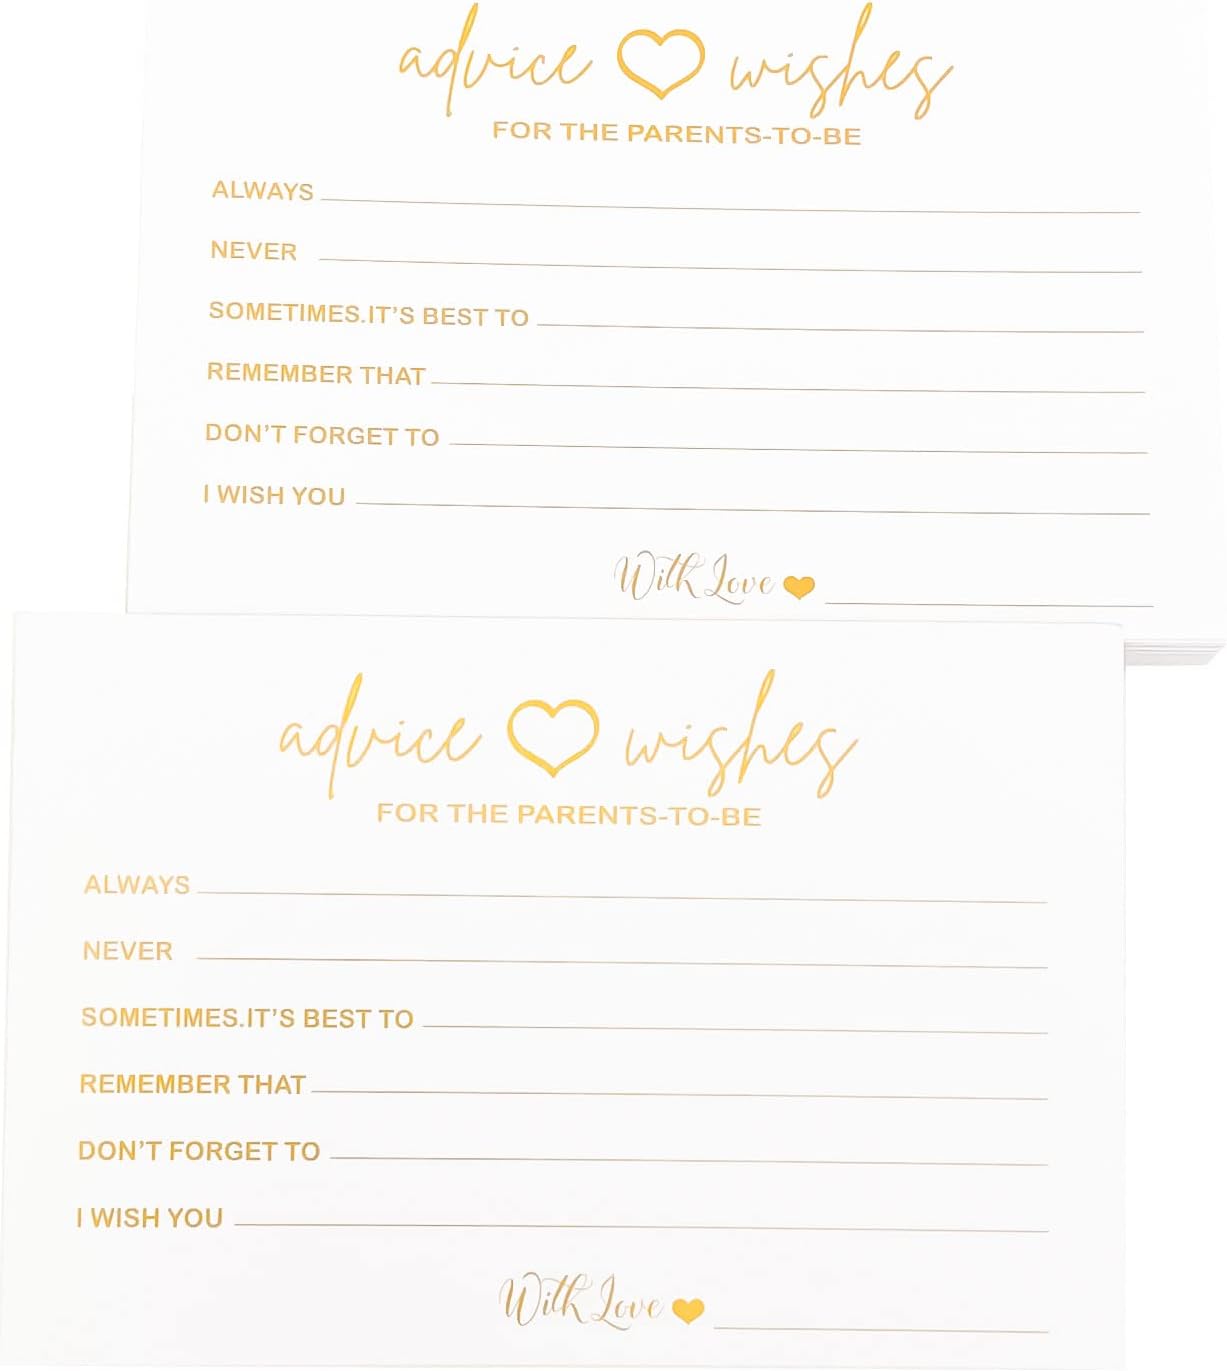 advice wishes
FOR THE PARENTS-TO-BE
ALWAYS
NEVER
SOMETIMES.IT'S BEST TO
REMEMBER THAT
DON'T FORGET TO
I WISH YOU
With Love
advice wishes
FOR THE PARENTS-TO-BE
ALWAYS
NEVER
SOMETIMES.IT'S BEST TO
REMEMBER THAT
DON'T FORGET TO
I WISH YOU
With Love